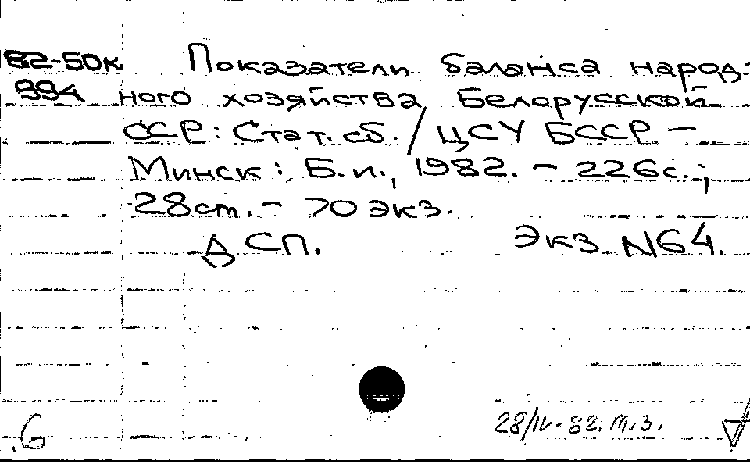 82-50к Показатели баланса народ-
994 ного хозяйства Белорусской
ССР: Стат. сб. / ЦСУ БССР –
Минск: Б.и., 1982. – 226с.;
28см. – 70 экз.
ДСП. Экз. N64.
28/IV-82. т.з.
.6